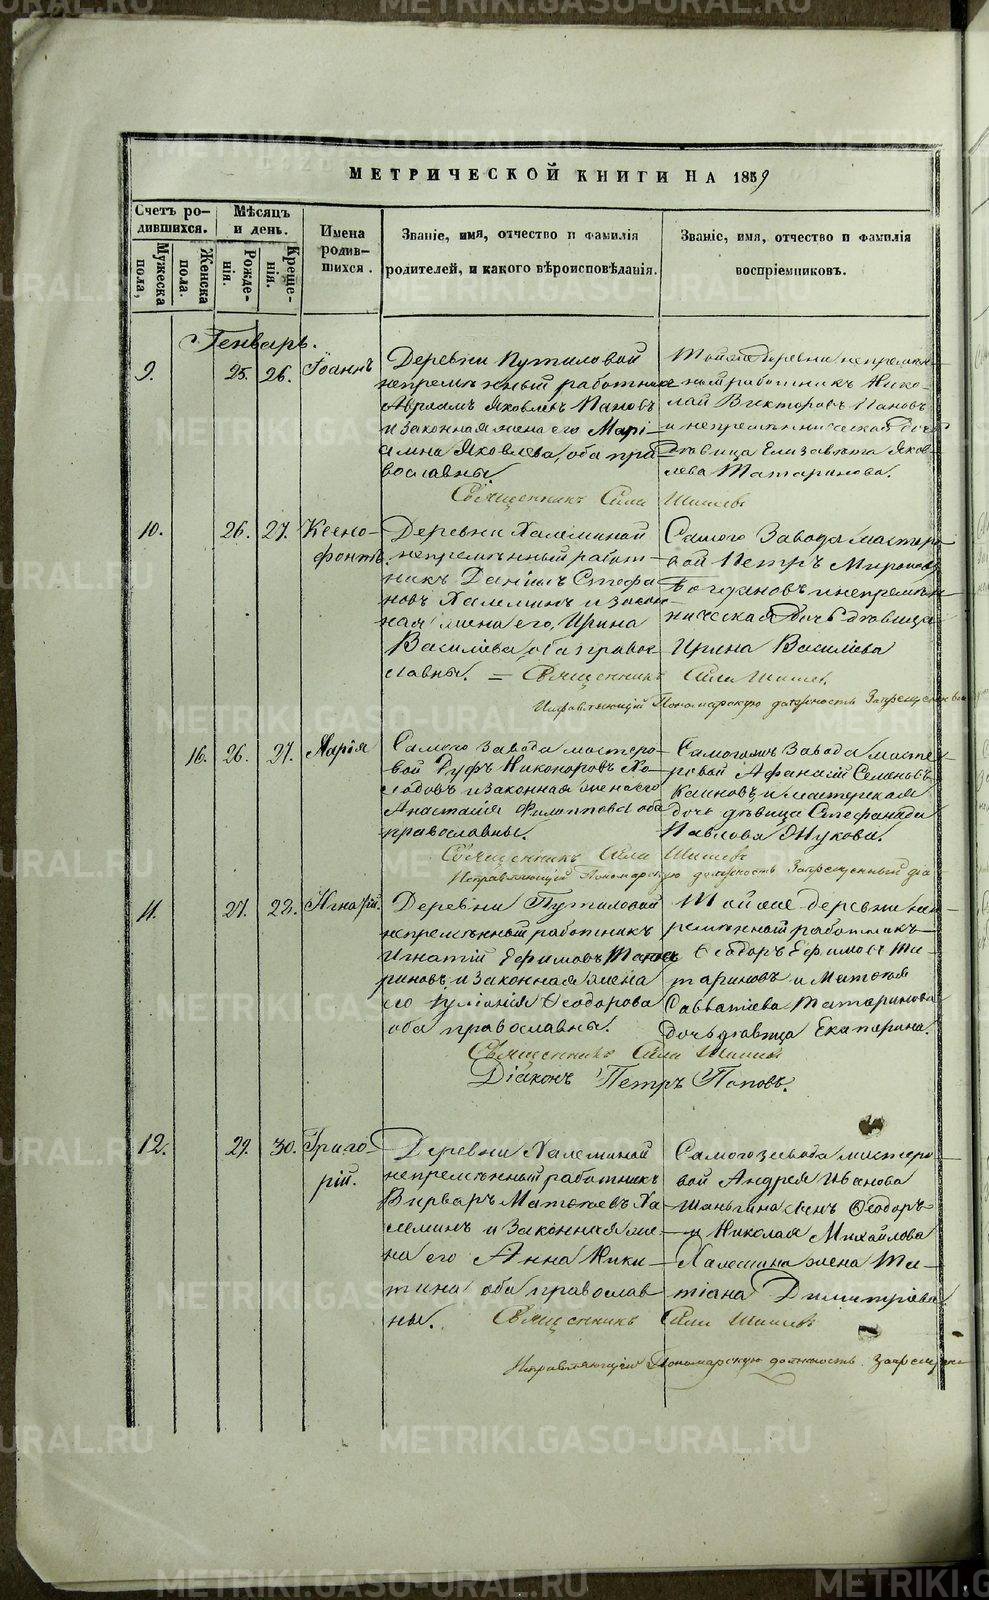 МЕТРИЧЕСКОЙ КНИГИ НА 1859
Счетъ ро-
дившихся.
Мужеска пола,
Женска пола.
Мѣсяцъ
и день.
Рожде-
нія.
Креще-
нія.
Имена
родив-
шихся.
Званіе, имя, отчество и фамилія
родителей, и какого вѣроисповѣданія.
Званіе, имя, отчество и фамилія
воспріемниковъ.
Генварь.
9.
25. 26.
Іоаннъ
Деревни Путиловой
непремѣнный работникъ
Авраамъ Яковлевъ Пановъ
и законная жена его Марі-
амна Яковлева, оба пра-
вославны.
Тойже деревни непремѣн-
ной работникъ Нико-
лай Викторовъ Пановъ
и непремѣнническая дочь
дѣвица Елизавета Яков-
лева Татаринова.
Священникъ Сила
10.
26. 27.
Ксено-
фонтъ.
Деревни Халеминой
непремѣнный работ-
никъ Даніилъ Стефа-
новъ Халеминъ и закон-
ная жена его, Ирина
Василіева, оба право-
славны.
Самого Завода мастеро-
вой Петръ Мироновъ
Богдановъ и непремѣн-
ническая дочь дѣвица
Ирина Василіева
Священникъ Сила
Исправляющій Пономарскую должность
16. 26. 27.
Марія
Самого завода мастеро-
вой Руфъ Никоноровъ Хо-
лодовъ и законная жена его
Анастасія Филиппова оба
православны.
Самогожъ Завода масте-
ровой Афанасій Семеновъ
и мастерская
дочь дѣвица Стефанида
Павлова Жукова.
Священникъ Сила
Исправляющій Пономарскую должность Запрещенный діа
11.
27. 28.
Игнатій.
Деревни Путиловой
непремѣнный работникъ
Игнатій Ефимовъ Тата-
риновъ, и законная жена
его Іуліанія Ѳеодорова
оба православны.
Тойже деревни неп-
ремѣнный работникъ
Ѳеодоръ Ефимовъ Та-
тариновъ и Матѳея
Савватіева Татаринова
дочь дѣвица Екатерина.
Священникъ Сила
Діаконъ Петръ Поповъ.
12.
29. 30.
Григо-
рій.
Деревни Халеминой
непремѣнный работникъ
Матѳеевъ Ха-
леминъ и законная же-
на его Анна Ники-
тина оба православ-
ны.
Самого завода мастеро-
вой Андрея Иванова
сынъ Ѳеодоръ
и Николая Михайлова
Халемина жена Та-
тіана Димитріева.
Священникъ Сила
Исправляющій Пономарскую должность